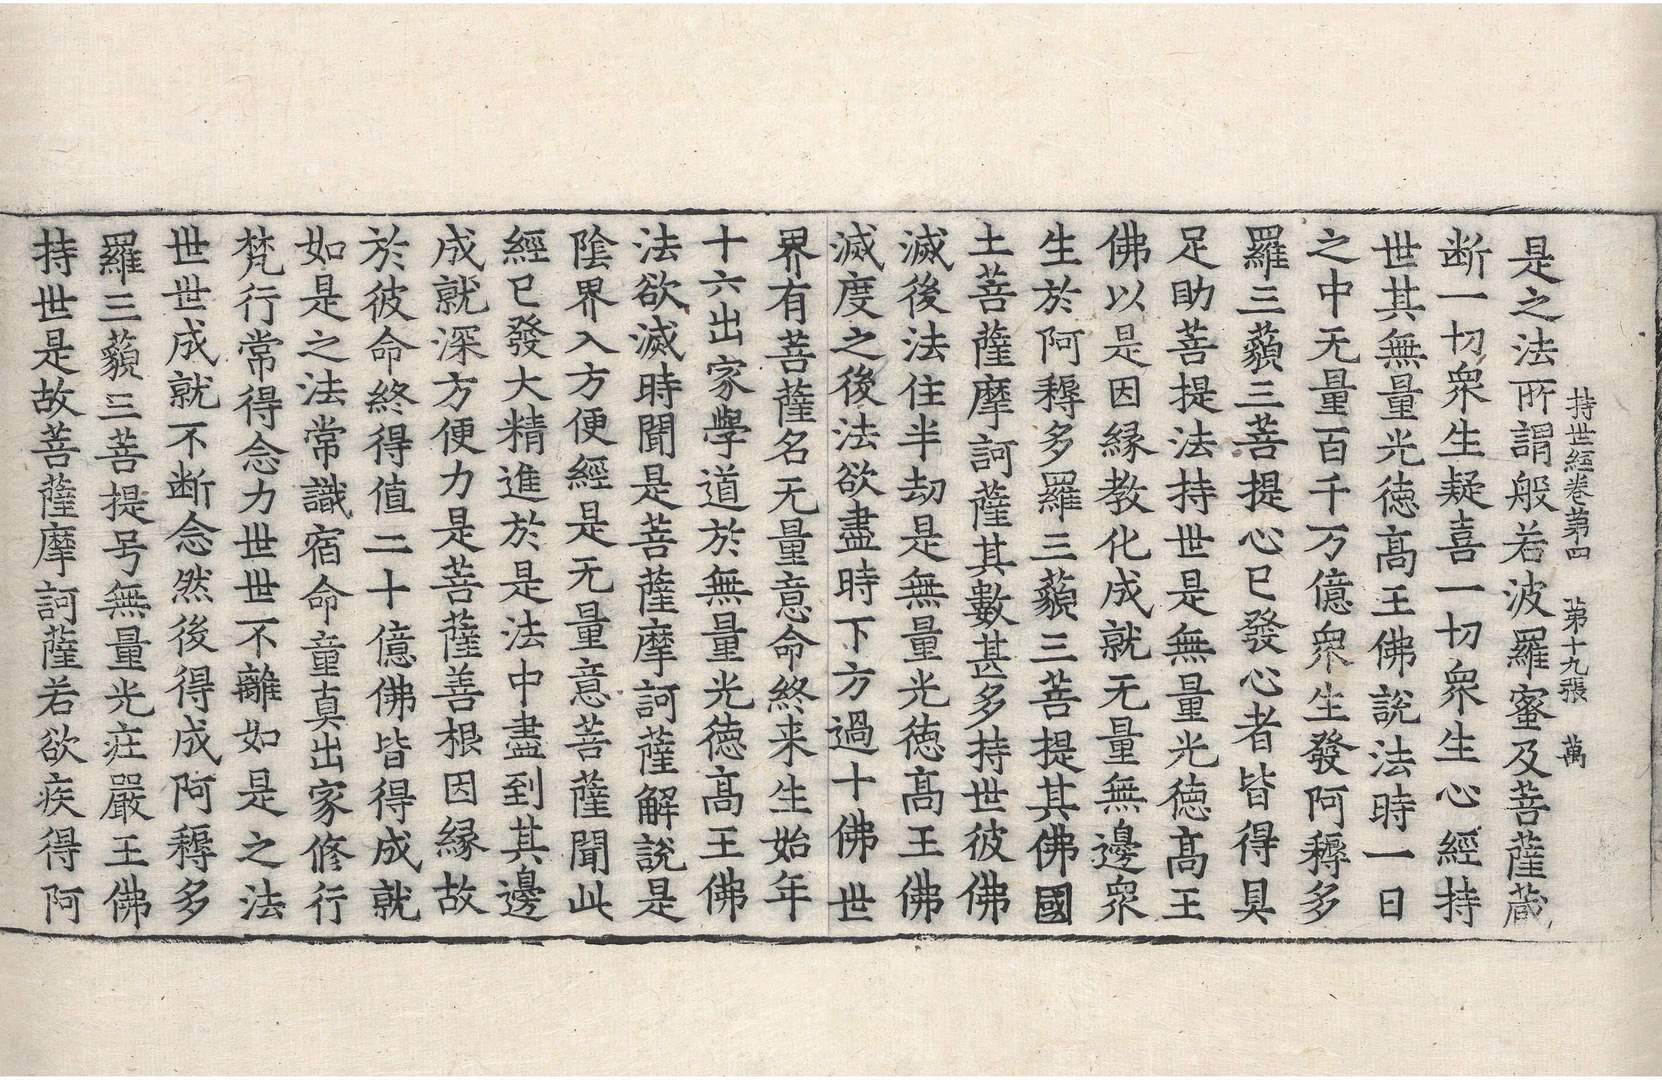 持世經卷第四　第十九張　萬
是之法所謂般若波羅蜜及菩薩藏
断一切衆生疑喜一切衆生心經持
世其無量光徳高王佛說法時一日
之中无量百千万億衆生發阿耨多
羅三藐三菩提心已發心者皆得具
足助菩提法持世是無量光徳高王
佛以是因縁教化成就无量無邊衆
生於阿耨多羅三藐三菩提其佛國
土菩薩摩訶薩其數甚多持世彼佛
滅後法住半劫是無量光徳高王佛
滅度之後法欲盡時下方過十佛世
界有菩薩名无量意命終来生始年
十六出家學道於無量光徳高王佛
法欲滅時聞是菩薩摩訶薩解說是
陰界入方便經是无量意菩薩聞此
經已發大精進於是法中盡到其邊
成就深方便力是菩薩善根因縁故
於彼命終得值二十億佛皆得成就
如是之法常識宿命童真出家修行
梵行常得念力世世不離如是之法
世世成就不断念然後得成阿耨多
羅三藐三菩提号無量光庄嚴王佛
持世是故菩薩摩訶薩若欲疾得阿